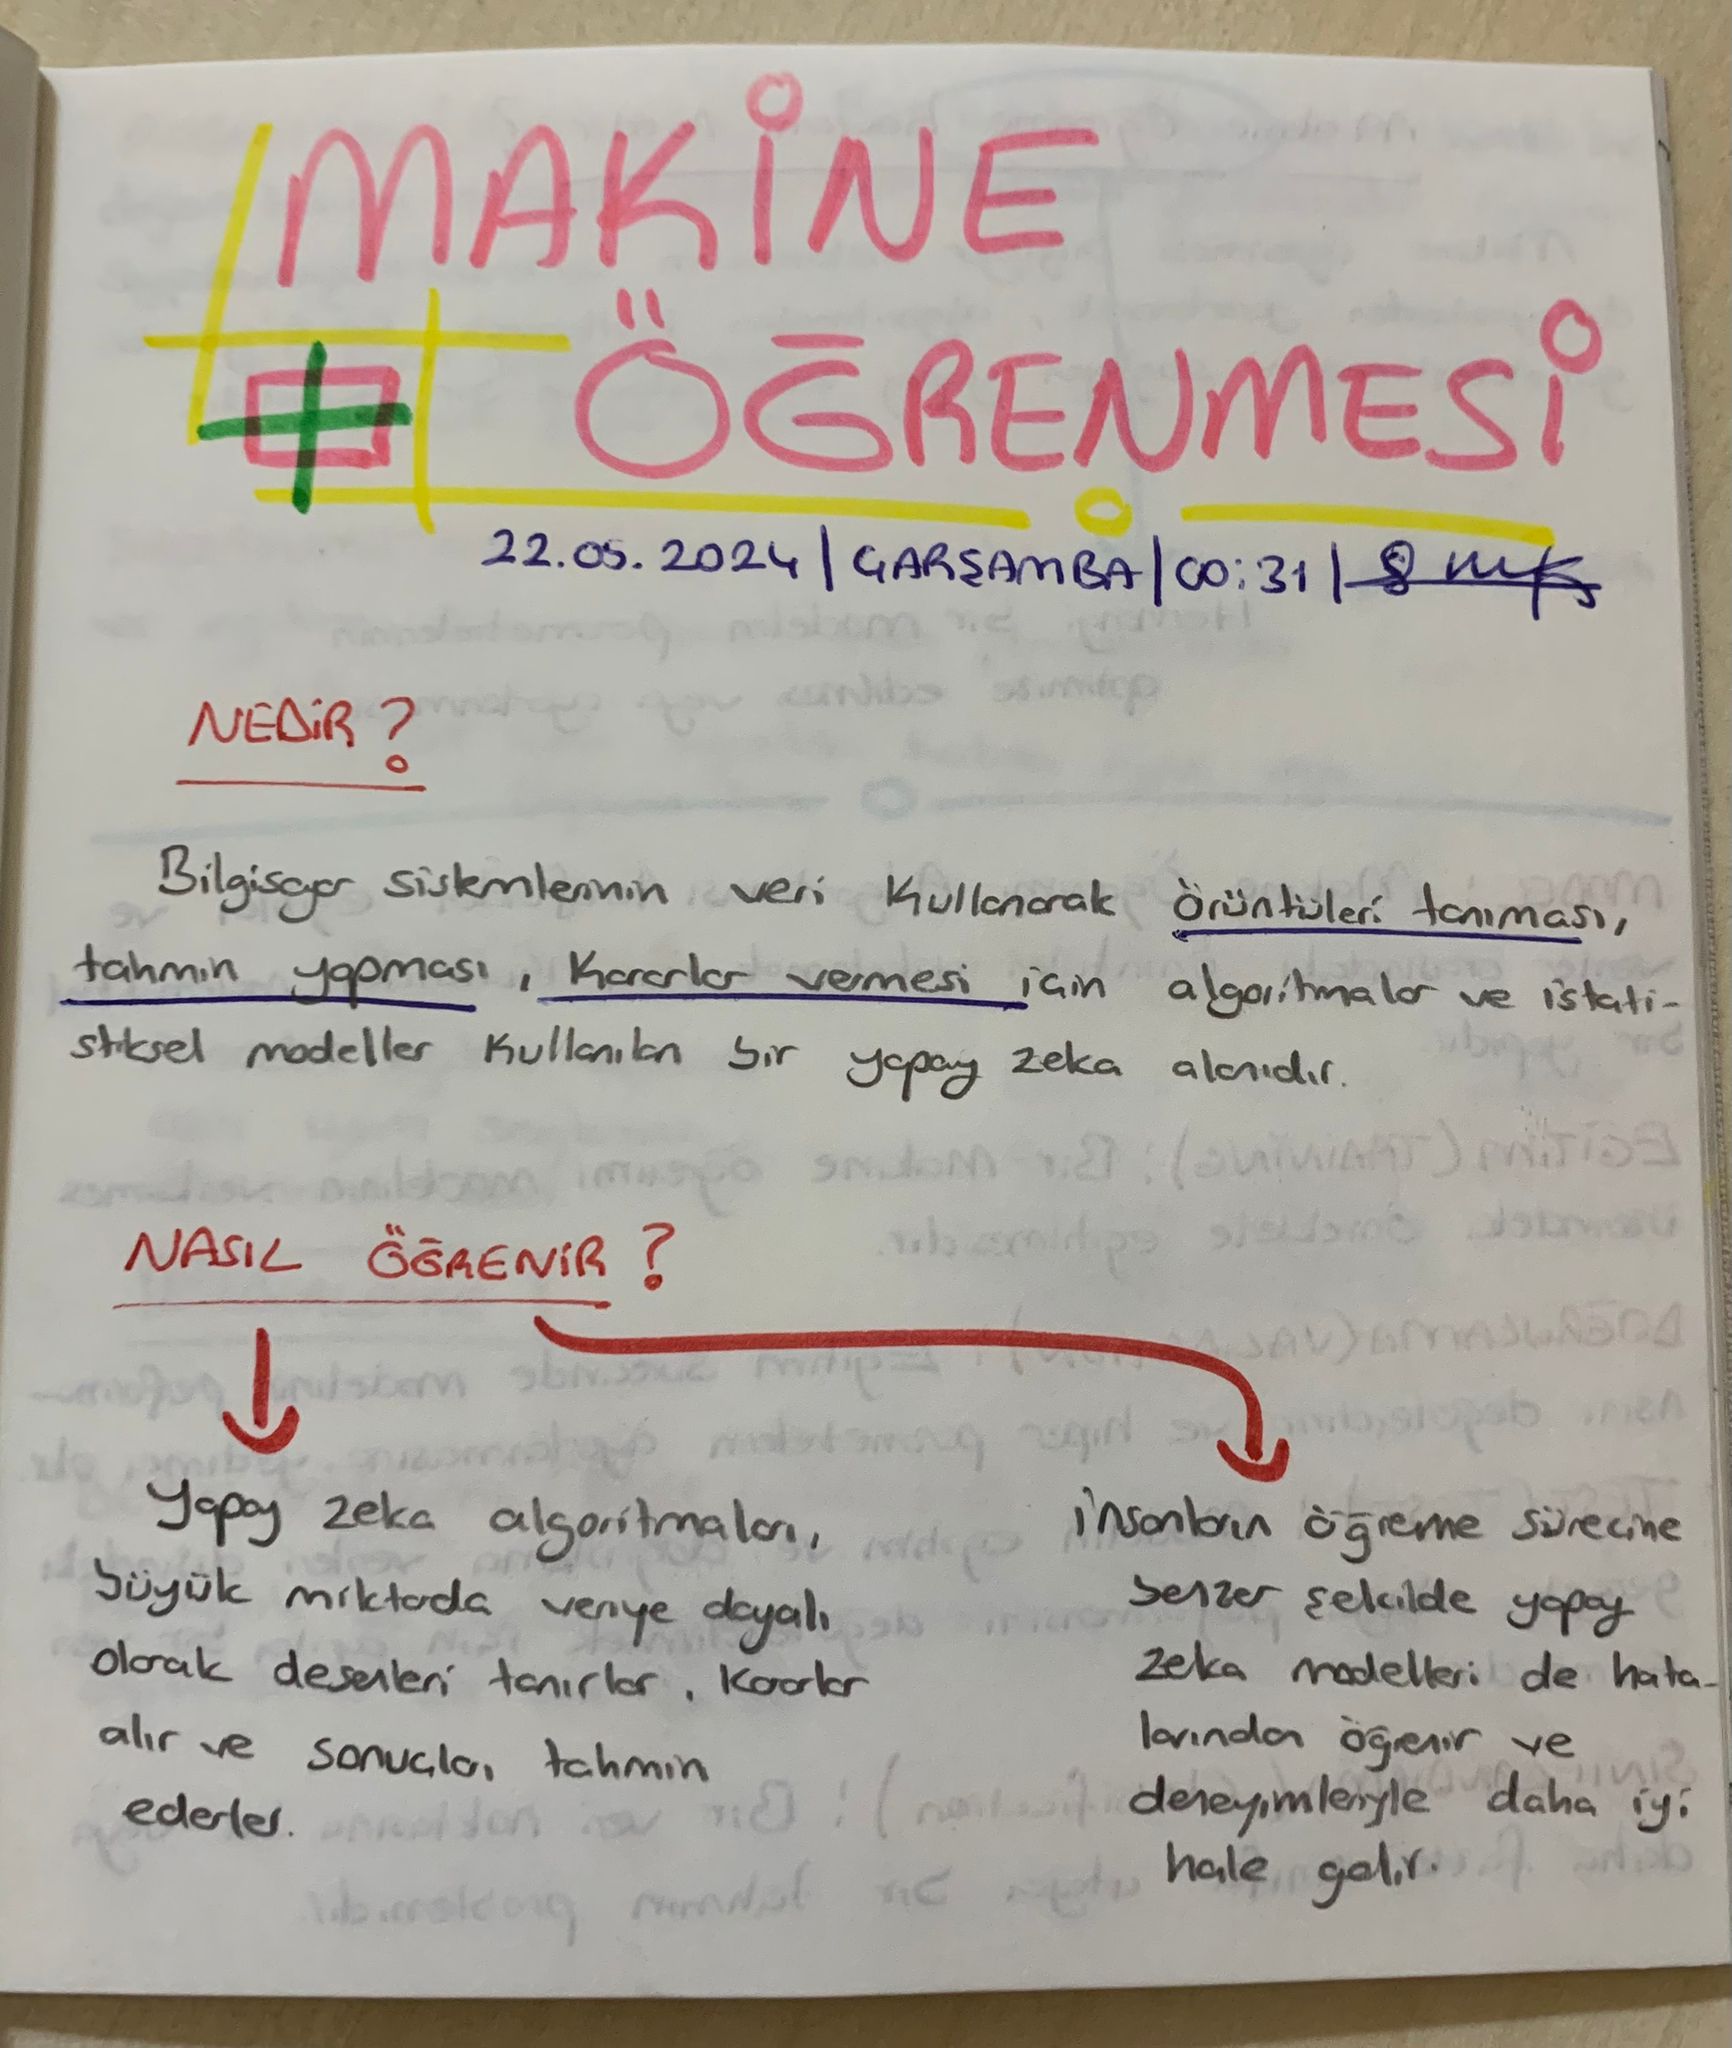 MAKİNE
ÖĞRENMESİ
22.05.2024 | ÇARŞAMBA | 00:31 |
NEDİR?
Bilgisayar sistemlerinin veri kullanarak örüntüleri tanıması,
tahmin yapması, kararlar vermesi için algoritmalar ve istati-
stiksel modeller kullanılan bir yapay zeka alanıdır.
NASIL ÖĞRENİR?
Yapay zeka algoritmaları,
büyük miktada veriye dayalı
olarak desenleri tanırlar. Kararlar
alır ve sonuçları tahmin
ederler.
İnsanların öğreme sürecine
benzer şekilde yapay
zeka modelleri de hata-
larından öğrenir ve
deneyimleriyle daha iyi
hale gelir.